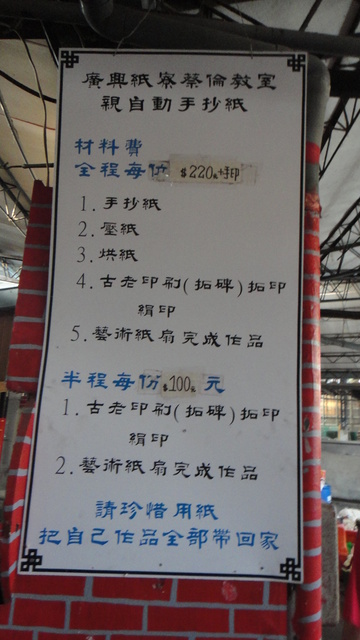 廣興紙寮蔡倫教室
親自動手抄紙
材料費
全程每份 $220元+印
1.手抄紙
2.壓紙
3.烘紙
4.古老印刷(拓碑)拓印
絹印
5.藝術紙扇完成作品
半程每份 $100元 元
1.古老印刷(拓碑)拓印
絹印
2.藝術紙扇完成作品
請珍惜用紙
把自己作品全部帶回家